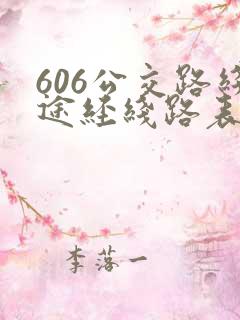 606公交路线
途经线路表
李落一